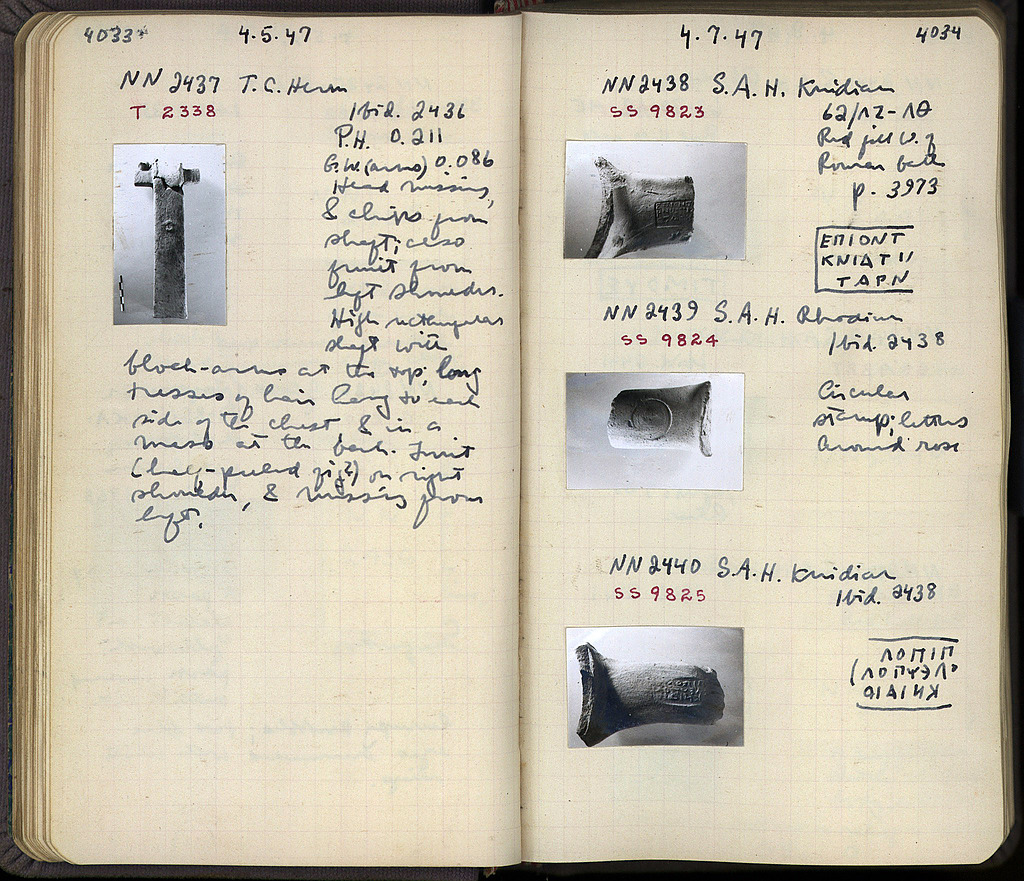 4033
4.5.47
NN 2437 T.C. Herm
T 2338
Ibid. 2436
P.H. 0.211
G.W. (arms) 0.086
Head missing,
& chips from
shaft; also
fruit from
left shoulder.
High rectangular
shaft with
block-arms at the top; long
tresses of hair hang to each
side of the chest & in a
mass at the back. Fruit
(half-peeled fig?) on right
shoulder, & missing from
left.
4.7.47
4034
NN2438 S.A.H. Knidian
SS 9823
62/ΛΖ-ΛΘ
Red fill W. of
Roman bath
p. 3973
ΕΠΙΟΝΤ
ΚΝΙΔΤΙ
ΤΑΡΝ
NN2439 S.A.H. Rhodian
SS 9824
Ibid. 2438
Circular
stamp; letters
around rose
NN2440 S.A.H. Knidian
SS 9825
Ibid. 2438